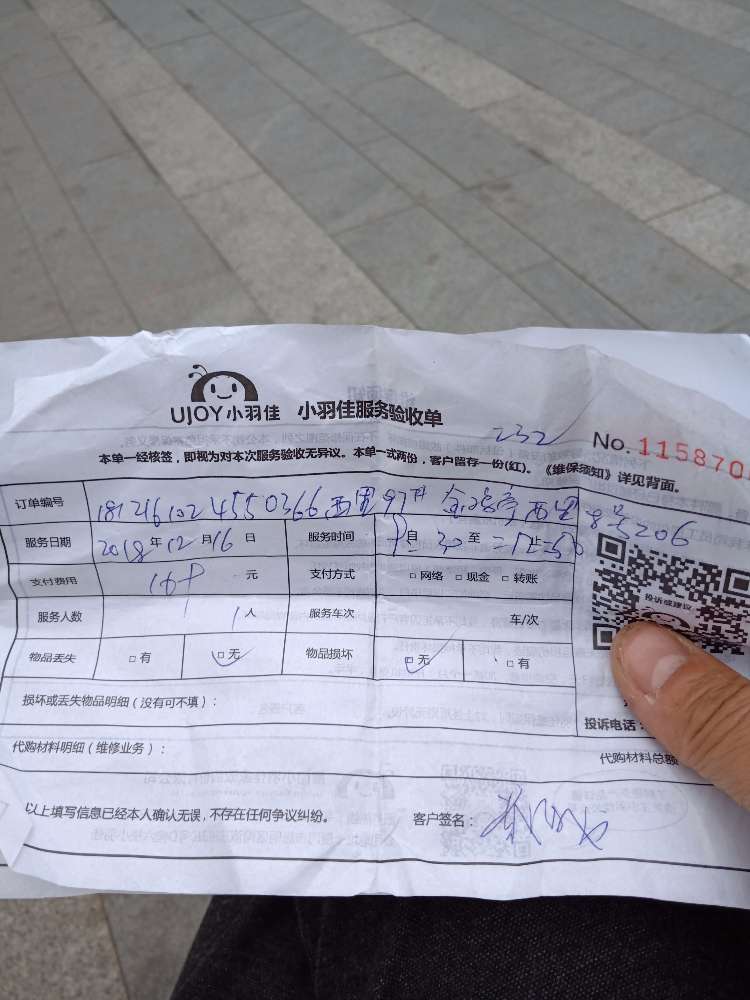 UJOY小羽佳 小羽佳服务验收单
232
No.115870
本单一经核签，即视为对本次服务验收无异议。本单一式两份，客户留存一份(红)。《维保须知》详见背面。
订单编号 1812161024550366
8号206
服务日期 2018年12月16日 服务时间 自 30 至 止
投诉或建议
支付费用 元 支付方式 □网络 □现金 □转账
服务人数 1人 服务车次 车/次
物品丢失 □有 □无 物品损坏 □无 □有
损坏或丢失物品明细（没有可不填）：
投诉电话：
代购材料明细（维修业务）：
代购材料总额
以上填写信息已经本人确认无误，不存在任何争议纠纷。 客户签名：